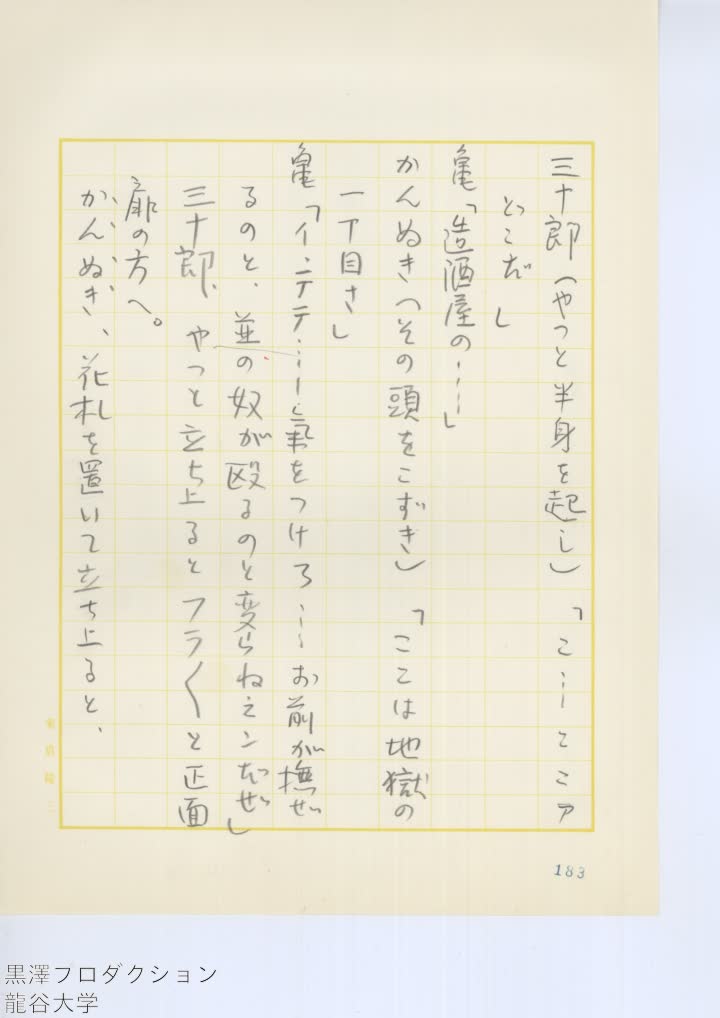 三十郎（やっと半身を起し）「こ……ここァ
どこだ」
亀「造酒屋の……」
かんぬき（その頭をこずき）「ここは地獄の
一丁目さ」
亀「イ、テテ……氣をつけろ……お前が撫ぜ
るのと、並の奴が殴るのと変らねえンだぜ」
三十郎、やっと立ち上るとフラ〱と正面
扉の方へ。
かんぬき、花札を置いて立ち上ると、
183
黒澤プロダクション
龍谷大学